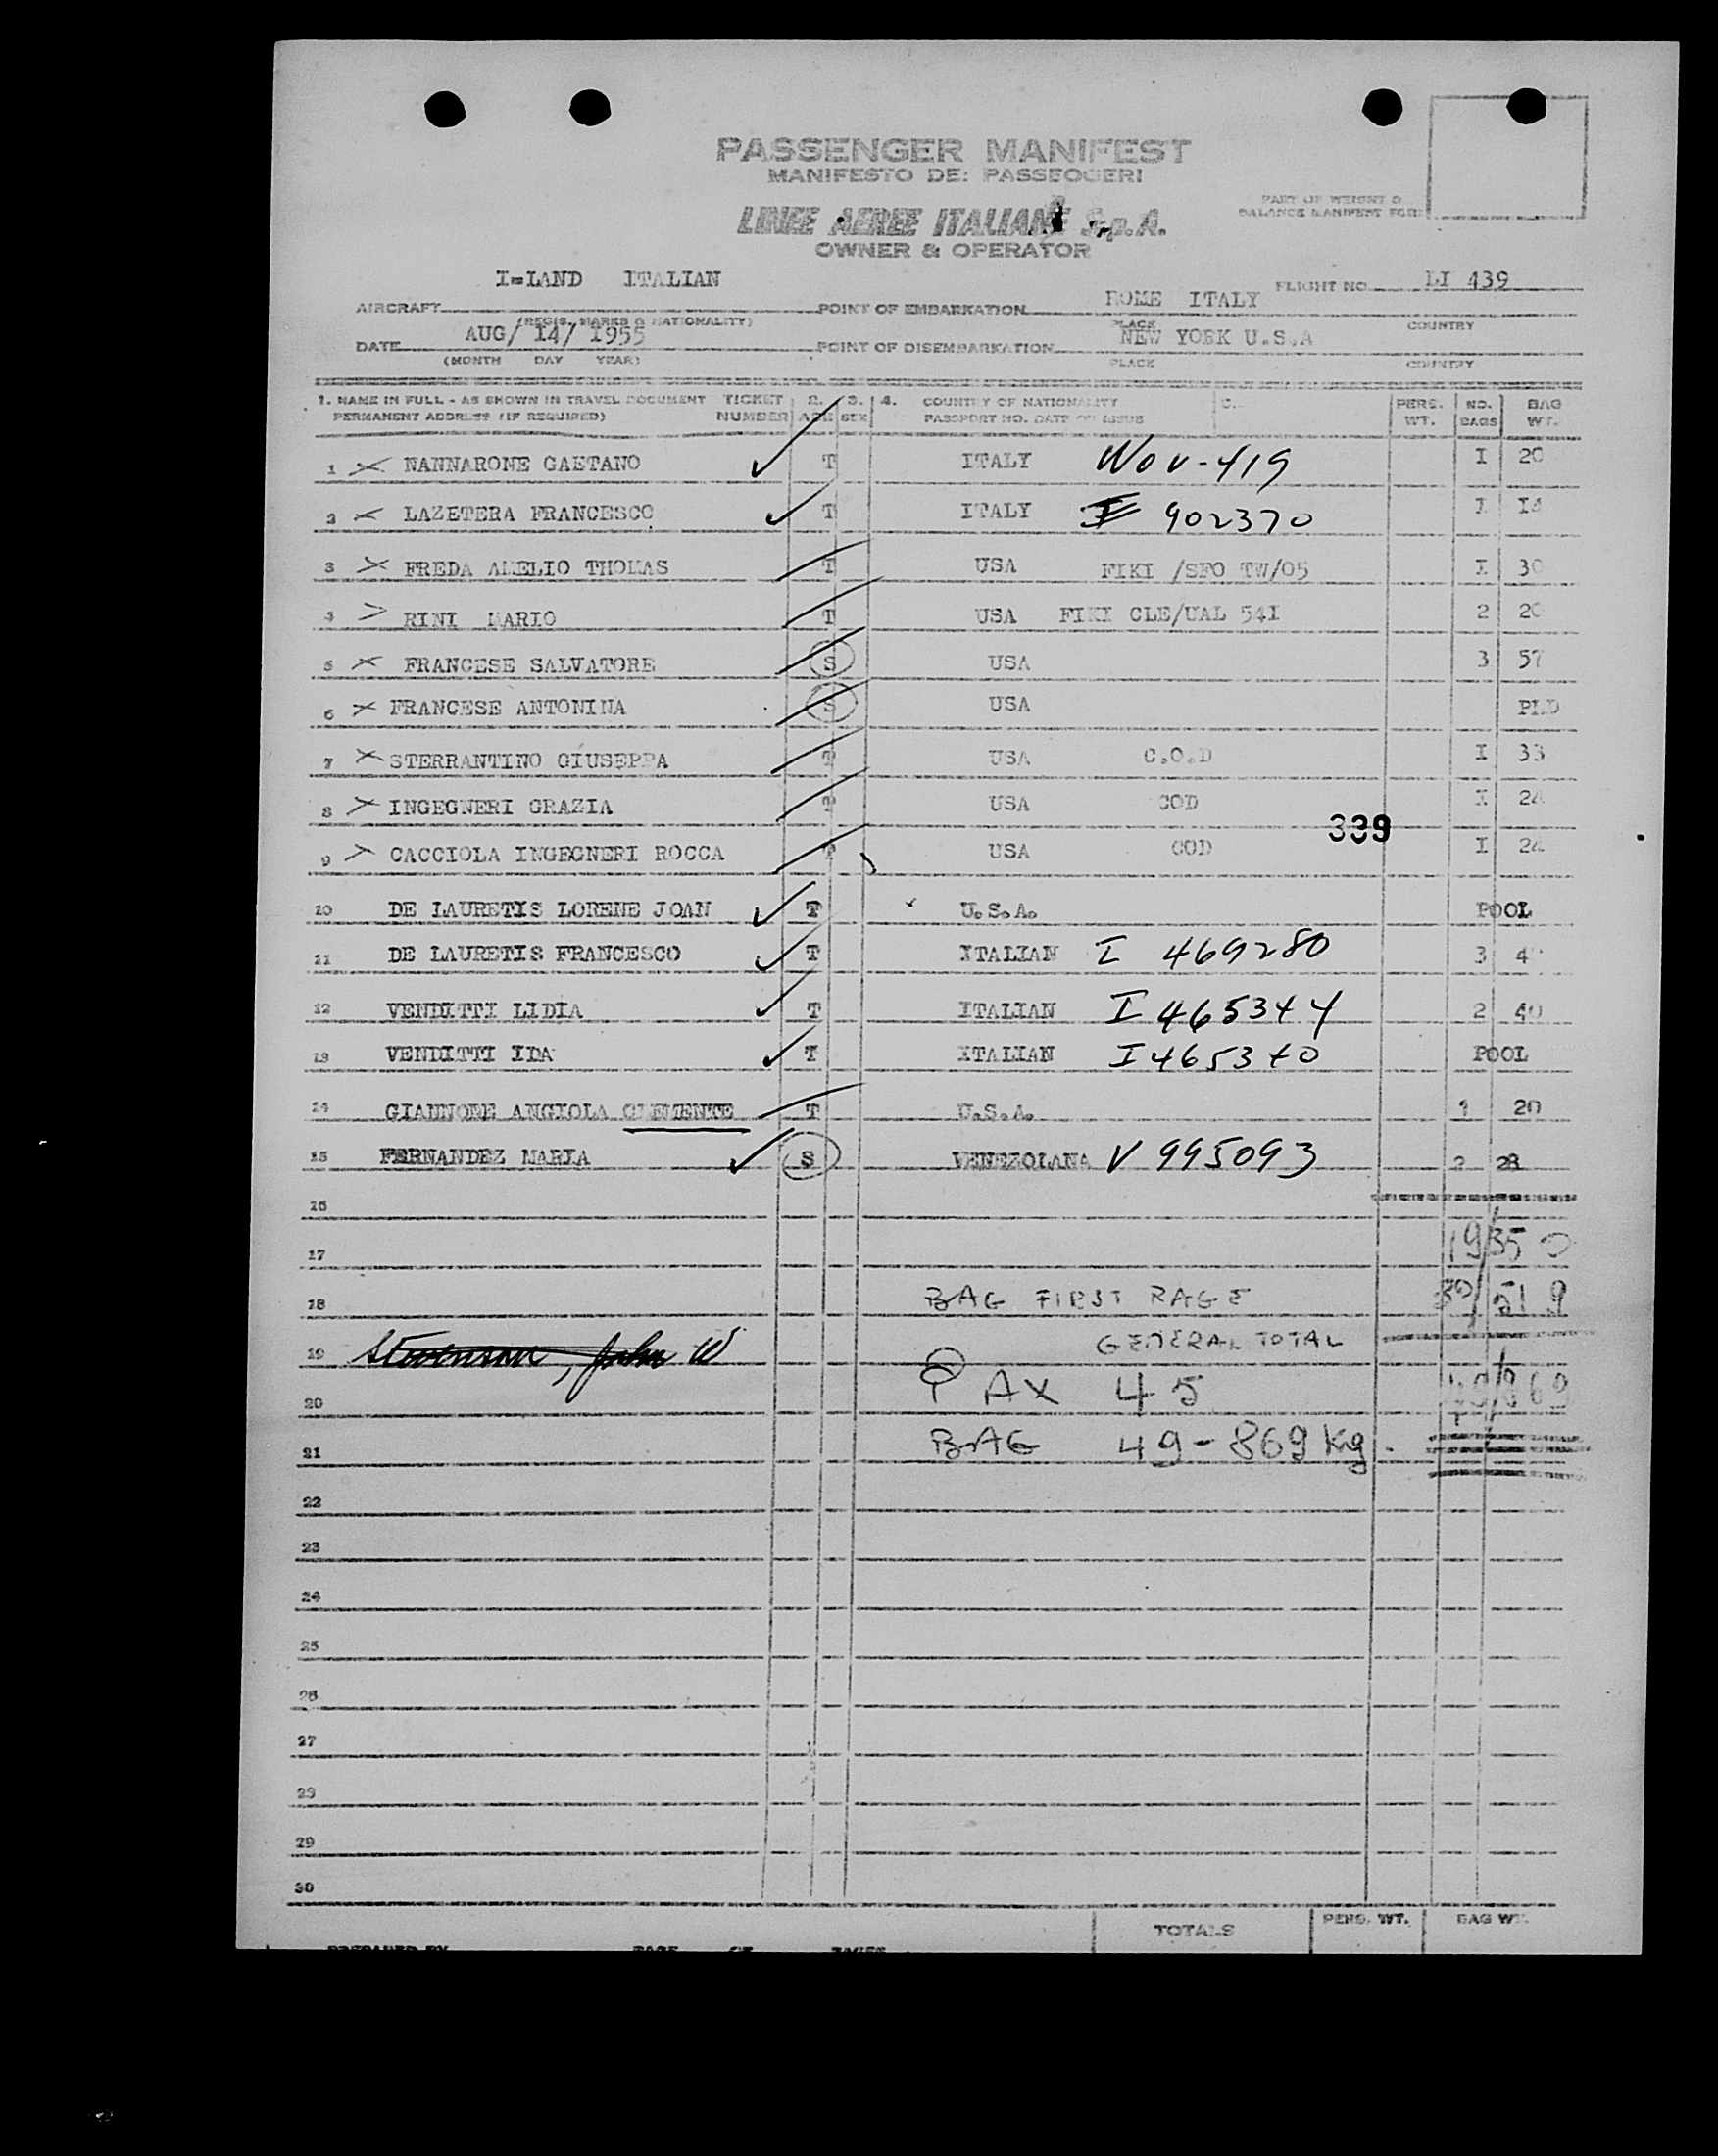 PASSENGER MANIFEST
MANIFESTO DE: PASSEOGERI
PART OF WEIGHT &
BALANCE MANIFEST FOR:
LINEE AEREE ITALIANE S.p.A.
OWNER & OPERATOR
I=LAND ITALIAN FLIGHT NO. LI 439
AIRCRAFT POINT OF EMBARKATION ROME ITALY
(REGIS. MARKS & NATIONALITY) PLACE COUNTRY
DATE AUG/ 14/ 1955 POINT OF DISEMBARKATION NEW YORK U.S.A
(MONTH DAY YEAR) PLACE COUNTRY
1. NAME IN FULL - AS SHOWN IN TRAVEL DOCUMENT TICKET 2. 3. 4. COUNTRY OF NATIONALITY PERS. NO. BAG
PERMANENT ADDRESS (IF REQUIRED) NUMBER AGE SEX PASSPORT NO. DATE OF ISSUE WT. BAGS WT.
1 NANNARONE GAETANO T ITALY I 20
2 LAZETERA FRANCESCO T ITALY 902370 I 14
3 FREDA AMELIO THOMAS T USA FIKI /SFO TW/05 I 30
4 RINI MARIO T USA FIKI CLE/UAL 54I 2 20
5 FRANCESE SALVATORE S USA 3 57
6 FRANCESE ANTONINA S USA
7 STERRANTINO GIUSEPPA T USA C.O.D I 33
8 INGEGNERI GRAZIA T USA COD I 24
339
9 CACCIOLA INGEGNERI ROCCA T USA COD I 24
10 DE LAURETIS LORENE JOAN T U.S.A. POOL
11 DE LAURETIS FRANCESCO T ITALIAN I 469280 3
12 VENDITTI LIDIA T ITALIAN I 465344 2 40
13 VENDITTI IDA T ITALIAN I 465340 POOL
14 GIANNONE ANGIOLA CLEMENTE T U.S.A. 1 20
15 FERNANDEZ MARIA S VENEZOLANA V 995093 2 28
16
17 19/350
18 BAG FIRST PAGE 30/519
GENERAL TOTAL
19 Stevenson, John W
20 PAX 45 49/869
21 BAG 49-869 Kg.
22
23
24
25
26
27
28
29
30
TOTALS PERS. WT. BAG WT.
PREPARED BY PAGE OF PAGES